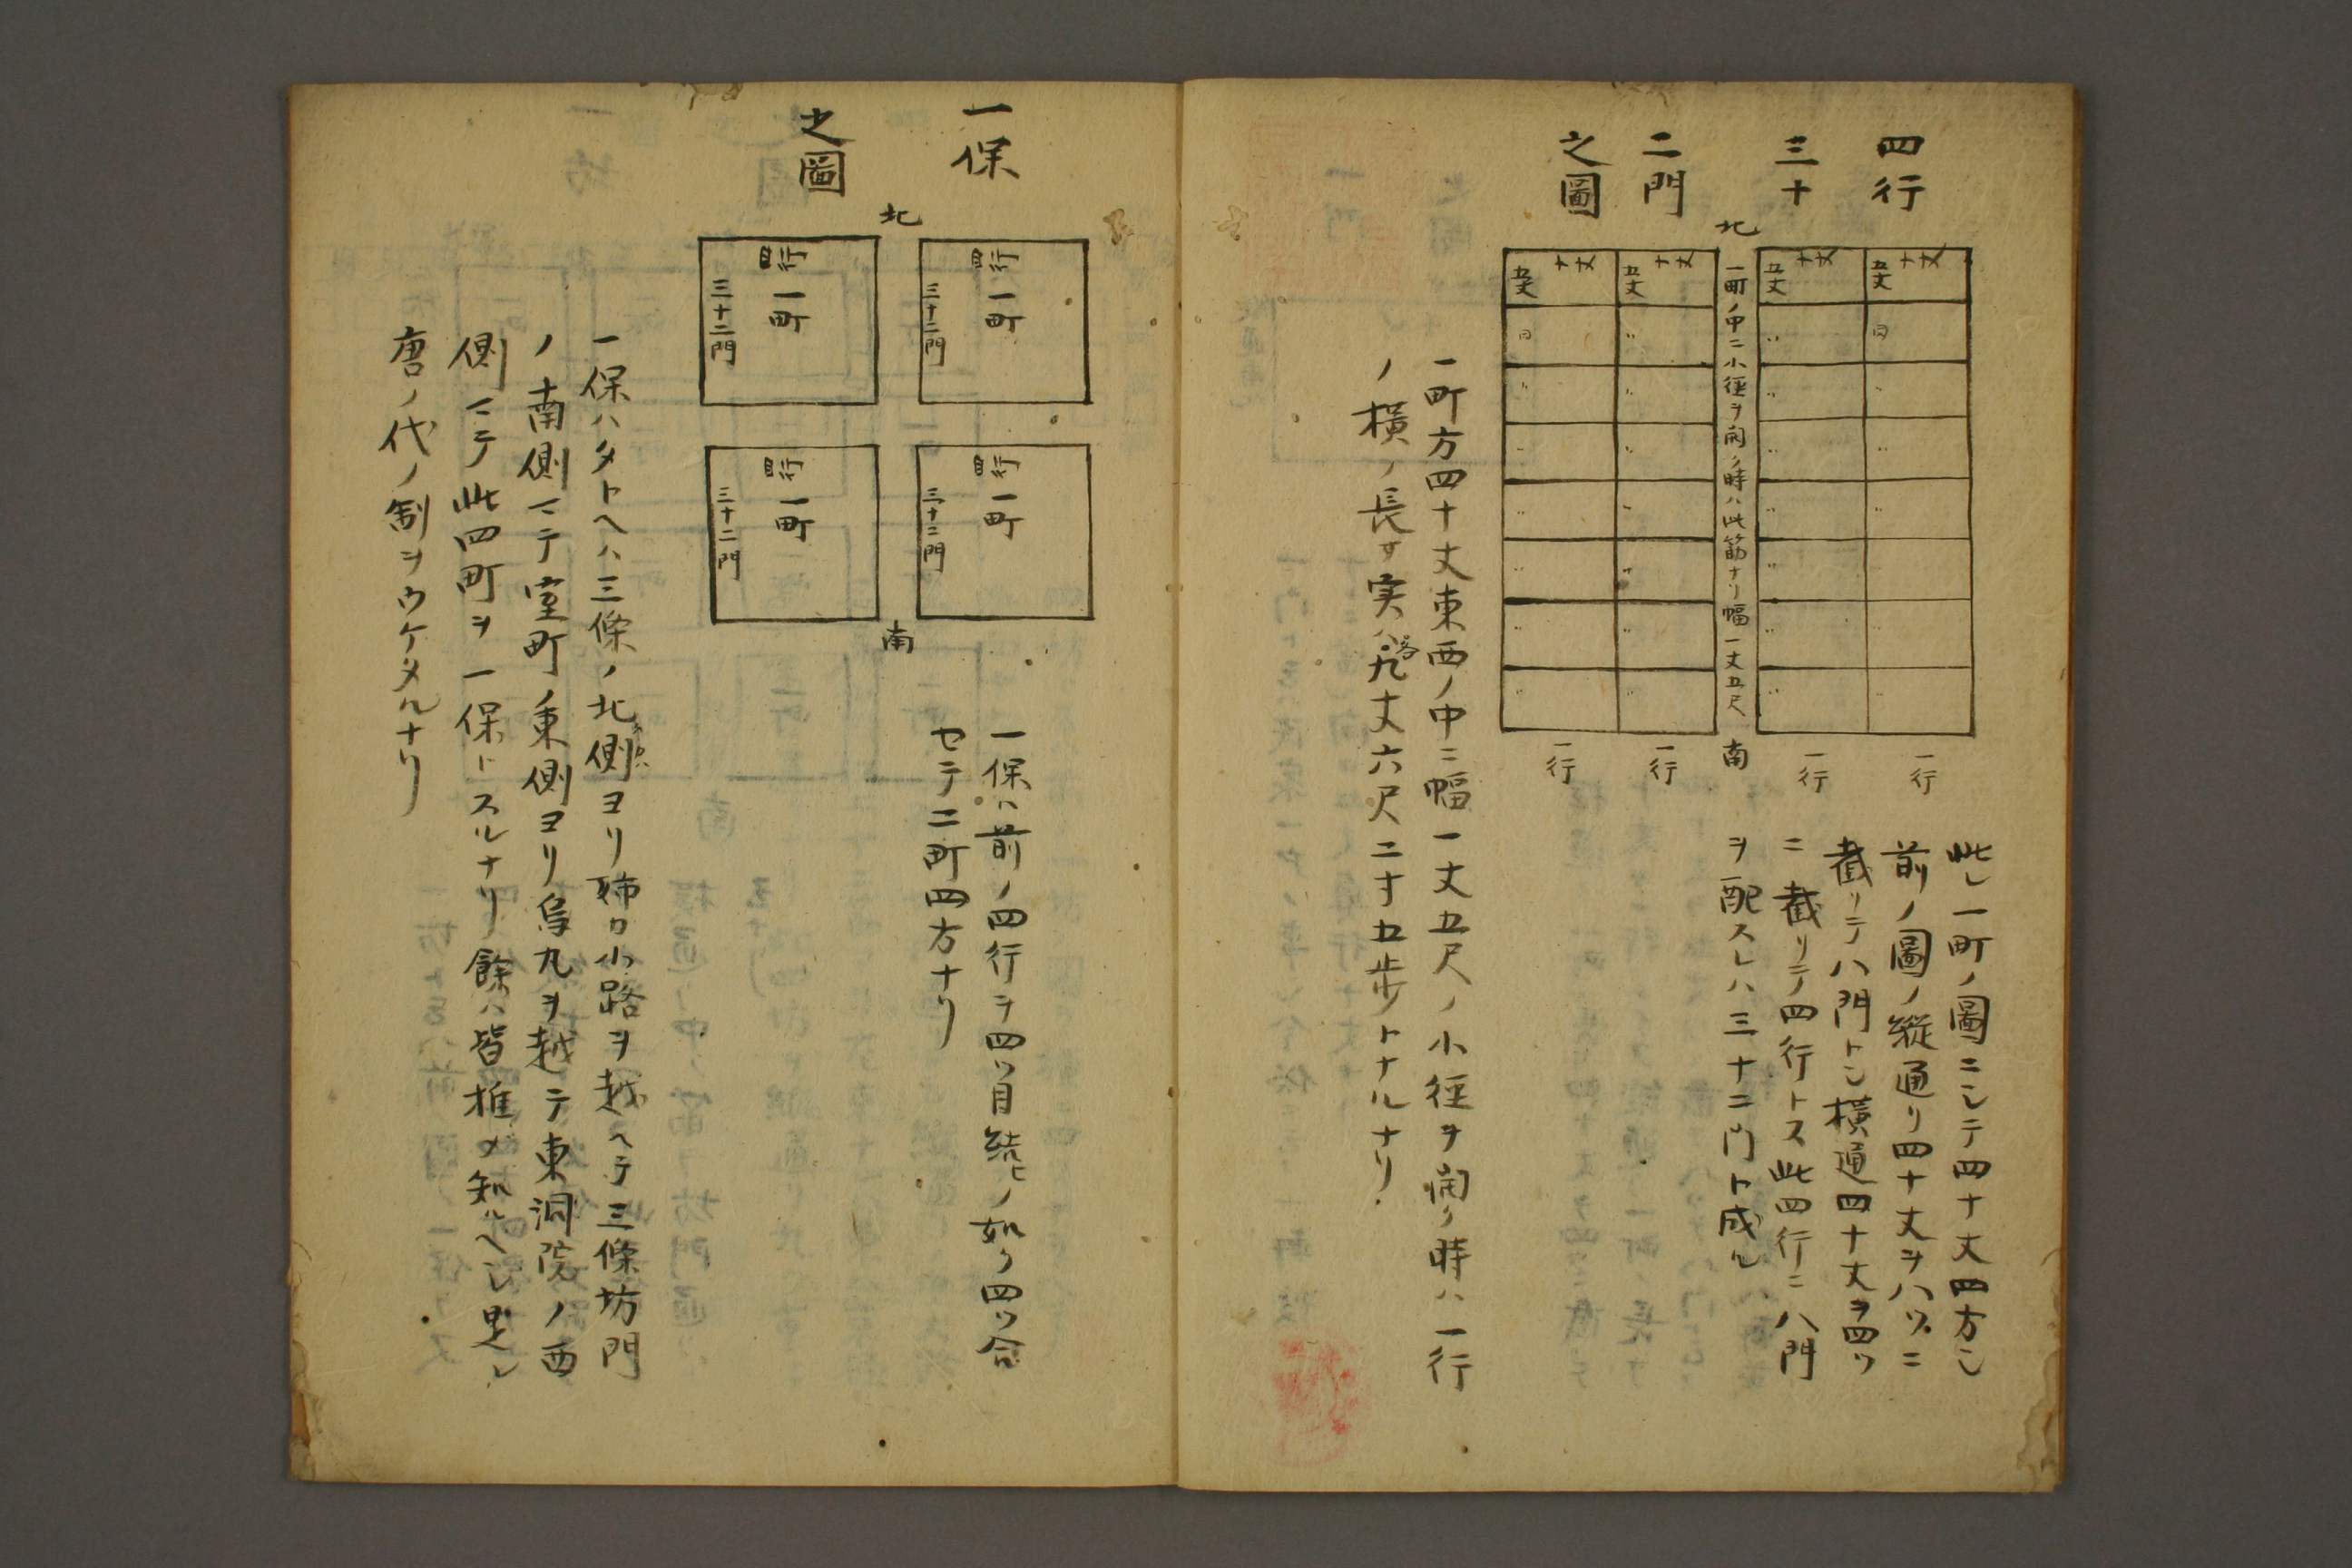 四行
三十
二門
之圖
北
十丈
五丈
十丈
五丈
一町ノ中ニ小徑ヲ開ク時ハ此筋ナリ幅一丈五尺
十丈
五丈
十丈
五丈
同
〃
〃
同
南
一行
一行
一行
一行
此レ一町ノ圖ニシテ四十丈四方シ
前ノ圖ノ縱通リ四十丈ヲ八ツニ
截リテ八門トシ橫通四十丈ヲ四ツ
ニ截リテ四行トス此四行ニ八門
ヲ配スレハ三十二門ト成ル
一町方四十丈東西ノ中ニ幅一丈五尺ノ小徑ヲ開ク時ハ一行
ノ橫ノ長サ実ハ各九丈六尺二寸五歩トナルナリ
一保
之圖
北
四行
一町
三十二門
四行
一町
三十二門
四行
一町
三十二門
四行
一町
三十二門
南
一保ハ前ノ四行ヲ四ツ目結ヒノ如ク四ツ合
セテ二町四方ナリ
一保ハタトヘハ三條ノ北側ヨリ姉ロ小路ヲ越ヘテ三條坊門
ノ南側ニテ室町ノ東側ヨリ烏丸ヲ越テ東洞院ノ西
側ニテ此四町ヲ一保トスルナリ餘ハ皆推メ知ルヘシ是レ
唐ノ代ノ制ヲウケタルナリ